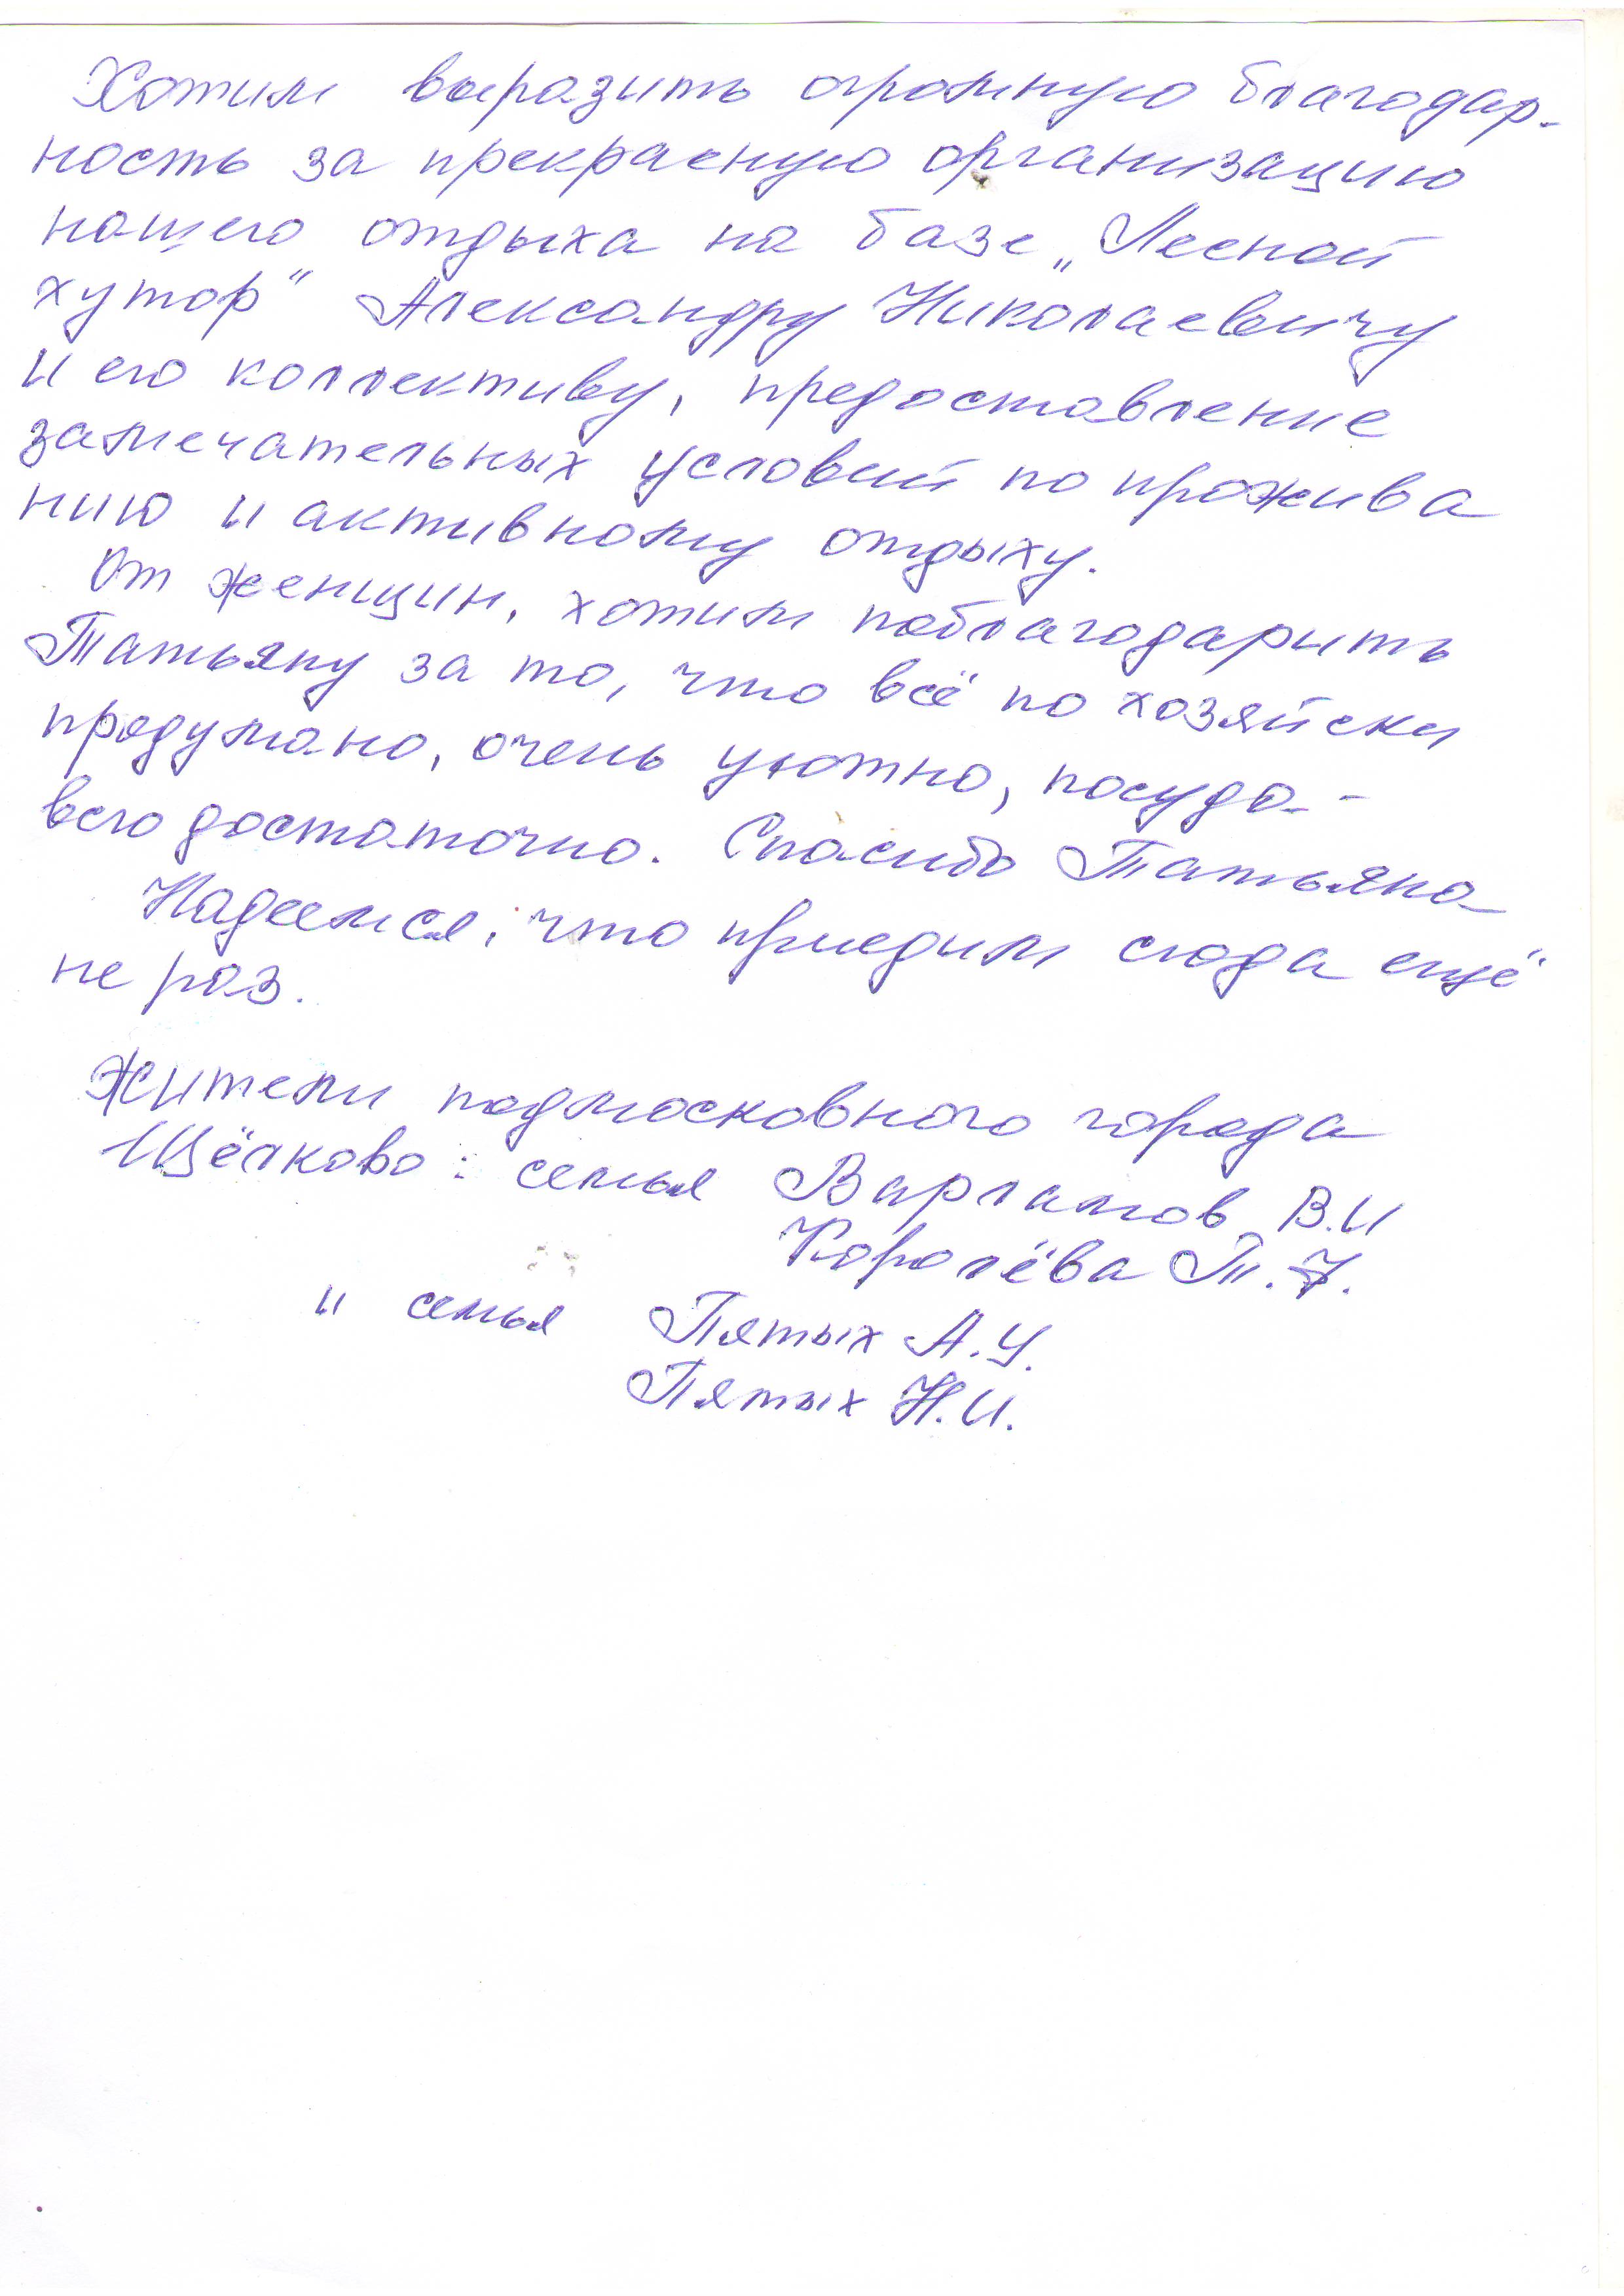 Хотим выразить огромную благодар-
ность за прекрасную организацию
нашего отдыха на базе „Лесной
хутор" Александру Николаевичу
и его коллективу, предоставление
замечательных условий по прожива
нию и активному отдыху.
От женщин, хотим поблагодарить
Татьяну за то, что всё по хозяйски
продумано, очень уютно, посуда -
всего достаточно. Спасибо Татьяна
Надеемся, что приедим сюда ещё
не раз.
Жители подмосковного города
Щёлково: семья Варламов В.И
Королёва Т.
и семья Пятых А.У.
Пятых Н.И.